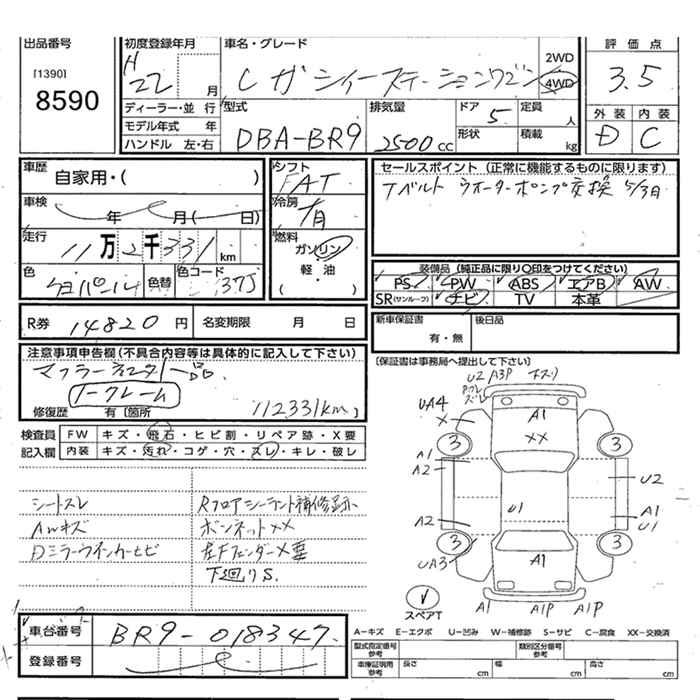 出品番号
[1390]
8590
初度登録年月
H
22 月
車名・グレード
レガシィーステーションワゴン
2WD
4WD
評価点
3.5
ディーラー・並 行
モデル年式 年
ハンドル 左・右
型式
DBA-BR9
排気量
2500 cc
ドア 5
形状
定員 人
積載 kg
外装 内装
D C
車歴
自家用・( )
シフト
FAT
セールスポイント (正常に機能するものに限ります)
Tベルト ウオーターポンプ交換
車検
年 月(ー日)
冷房
走行
11万2千331km
燃料
ガソリン
軽・油
( )
装備品 (純正品に限り○印をつけてください)
PS PW ABS エアB AW
SR(サンルーフ) ナビ TV 本革
色
色替
色コード
37J
R券 14820 円
名変期限 月 日
新車保証書
有・無
後日品
注意事項申告欄(不具合内容等は具体的に記入して下さい)
ノークレーム
修復歴 有 [箇所
112331km )
(保証書は事務局へ提出して下さい)
検査員
記入欄
FW キズ・飛石・ヒビ割・リペア跡・X要
内装 キズ・汚れ・コゲ・穴・スレ・キレ・破レ
シートスレ
AWキズ
Dミラーウインカーヒビ
Rフロアシーラント補修跡
ボンネットXX
左Fフェンダー X要
下廻りS
U2 A3P
UA4
X
A1
XX
3
3
A1
A2
U2
U1
A1
U1
A2
3
UA3
A1
3
スペアT
A1 A1P A1P
車台番号
BR9-018347
登録番号
A-キズ E-エクボ U-凹み W-補修跡 S-サビ C-腐食 XX-交換済
型式指定番号
参考
類別区分番号
参考
車庫証明用
参考
長さ cm
幅 cm
高さ cm